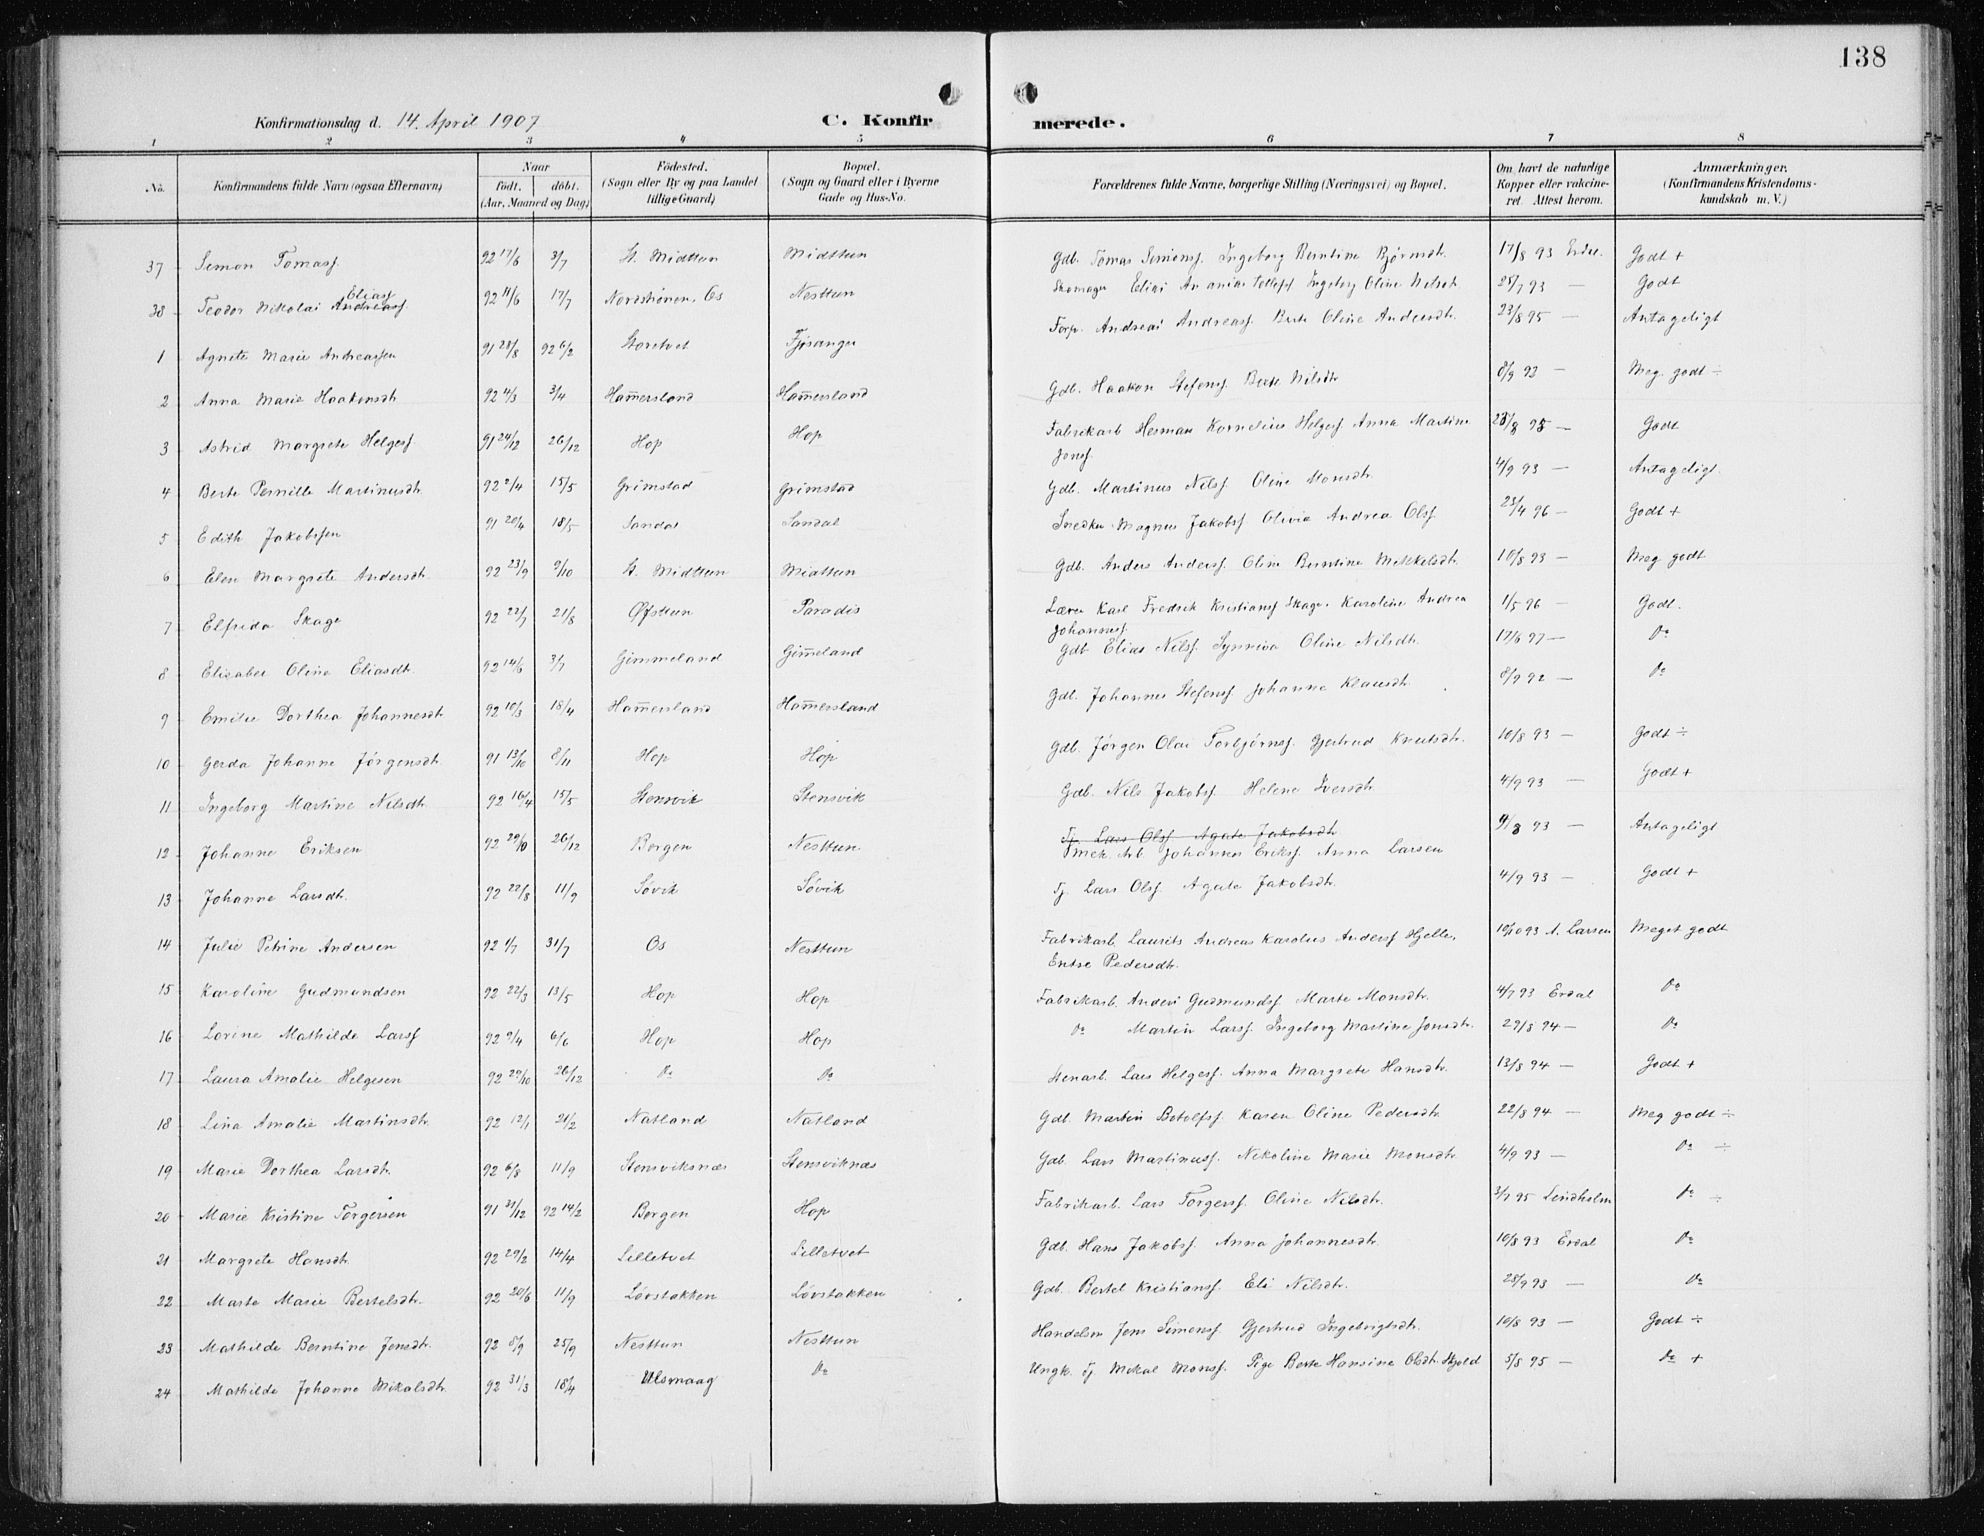 138
Konfirmationsdag d. 14. April 1907 C. Konfirmerede.
1 2 3 4 5 6 7 8
No. Konfirmandens fulde Navn (ogsaa Efternavn) Naar født. døbt. (Aar, Maaned og Dag) Fødested. (Sogn eller By og paa Landet tillige Gaard) Bopæl. (Sogn og Gaard eller i Byerne Gade og Hus-No. Forældrenes fulde Navne, borgerlige Stilling (Næringsvei) og Bopæl. Om havt de naturlige Kopper eller vakcineret. Attest herom. Anmærkninger. (Konfirmandens Kristendomskundskab m. V.)
37 Simon Tomass. 92 17/6 3/7 St. Midttun Midttun Gdb. Tomas Simons. Ingeborg Berntine Bjørnsdt. 17/8 93 Godt +
38 Teodor Nikolai Andreasf. Eliasf 92 11/6 17/7 Nordstrønen, Os Nesttun Skomager Elias Ananias Ingeborg Oline Nilsdt. 25/7 93 — Godt
1 Agnete Marie Andreassen 91 28/8 92 6/2 Storetvet Fjøsanger Forp. Andreas Andreasf. Berte Oline Andersdt. 23/8 95 — Antageligt
2 Anna Marie Haakonsdt. 92 4/3 3/4 Ham̅ersland Ham̅ersland Gdb. Haakon Stefensf. Berte Nilsdt 8/9 92 — Meg. godt ÷
3 Astrid Margrete Helgesf 91 24/12 26/12 Hop Hop Fabrikarb Herman Kornelius Helgesf Anna Martine Jonsf. 23/8 95 — Godt
4 Berte Pernille Martinusdt. 92 2/4 15/5 Grimstad Grimstad Gdb. Martinus Nilsf. Oline Monsdt. 4/9 93 — Antageligt.
5 Edith Jakobsen 91 20/4 18/5 Sandal Sandal Snedker Magnus Jakobsf Olivia Andrea Olsf 23/4 96 — Godt +
6 Elen Margrete Andersdt. 92 23/9 9/10 St. Midttun Midttun Gdb. Anders Andersf. Oline Berntine Mikkelsdt. 10/8 93 — Meg godt
7 Elfrida Skage 92 22/7 21/8 Øfsttun Paradis Lærer Karl Fredrik Kristiansf Skage. Karoline Andrea Johannesf 1/5 96 — Godt.
8 Elisabet Oline Eliasdt. 92 14/6 3/7 Gimmeland Gim̅eland Gdb. Elias Nilsf. Synneva Oline Nilsdt. 17/6 97 — Do
9 Emilie Dorthea Johannesdt 92 10/3 18/4 Ham̅ersland Ham̅ersland Gdb. Johannes Stefensf. Johanne Klausdt. 8/9 92 — Do
10 Gerda Johanne Jørgensdt 91 13/10 8/11 Hop Hop Gdb. Jørgen Olai Torbjørnsf. Gjertrud Knutsdt. 10/8 93 — Godt ÷
11 Ingeborg Martine Nilsdt. 92 16/4 15/5 Stensvik Stensvik Gdb. Nils Jakobsf Helene Iversdt. 4/9 93 — Godt +
Tj. Lars Olsf. Agate Jakobsdt
12 Johanne Eriksen 92 29/10 26/12 Bergen Nesttun mek. Arb. Johannes Eriksf. Anna Larsen 4/8 93 — Antageligt
13 Johanne Larsdt. 92 22/8 11/9 Søvik Søvik Tj. Lars Olsf. Agate Jakobsdt. 4/9 93 — Godt +
14 Julie Petrine Andersen 92 4/7 31/7 Os Nesttun Fabrikarb. Laurits Andreas Karolus Andersf Hjelle, Endre Pedersdt. 10/10 93 A. Larsen Meget godt
15 Karoline Gudmundsen 92 22/3 13/5 Hop Hop Fabrikarb. Anders Gudmundsf. Marte Monsdt. 4/7 93 Erdal Do
16 Lovine Mathilde Larsf 92 9/4 6/6 Hop Hop Do Martin Larsf. Ingeborg Martine Jonsdt. 29/8 94 — Do
17 Laura Amalie Helgesen 92 29/10 26/12 Do Do Stenarb. Lars Helgesf. Anna Margrete Hansdt. 13/8 94 — Godt +
18 Lina Amalie Martinsdt. 92 12/1 21/2 Natland Natland Gdb. Martin Botolfsf. Karen Oline Pedersdt. 22/8 94 — Meg godt ÷
19 Marie Dorthea Larsdt. 92 6/8 11/9 Stensviksnæs Stensviknæs Gdb. Lars Martinusf. Nikoline Marie Monsdt. 4/9 93 — Do ÷
20 Marie Kristine Torgersen 91 31/12 92 14/2 Bergen Hop Fabrikarb. Lars Torgersf. Oline Nilsdt. 3/7 95 Lindholm Do ÷
21 Margrete Hansdt. 92 29/2 14/4 Lilletvet Lilletvet Gdb. Hans Jakobsf. Anna Johannesdt. 10/8 93 Erdal Do
22 Marta Marie Bertelsdt. 92 20/6 11/9 Løvstakken Løvstakken Gdb. Bertel Kristiansf. Eli Nilsdt. 28/9 93 — Do
23 Mathilde Berntine Jensdt. 92 8/9 25/9 Nesttun Nesttun Handelsm Jens Simensf. Gjertrud Ingebrigtsdt. 10/8 93 — Godt ÷
24 Mathilde Johanne Mikalsdt. 92 31/3 18/4 Ulsmaag Do Ungk. Tj. Mikal Monsf. Pige Berte Hansine Olsdt. Skjold 5/8 95 — Do +